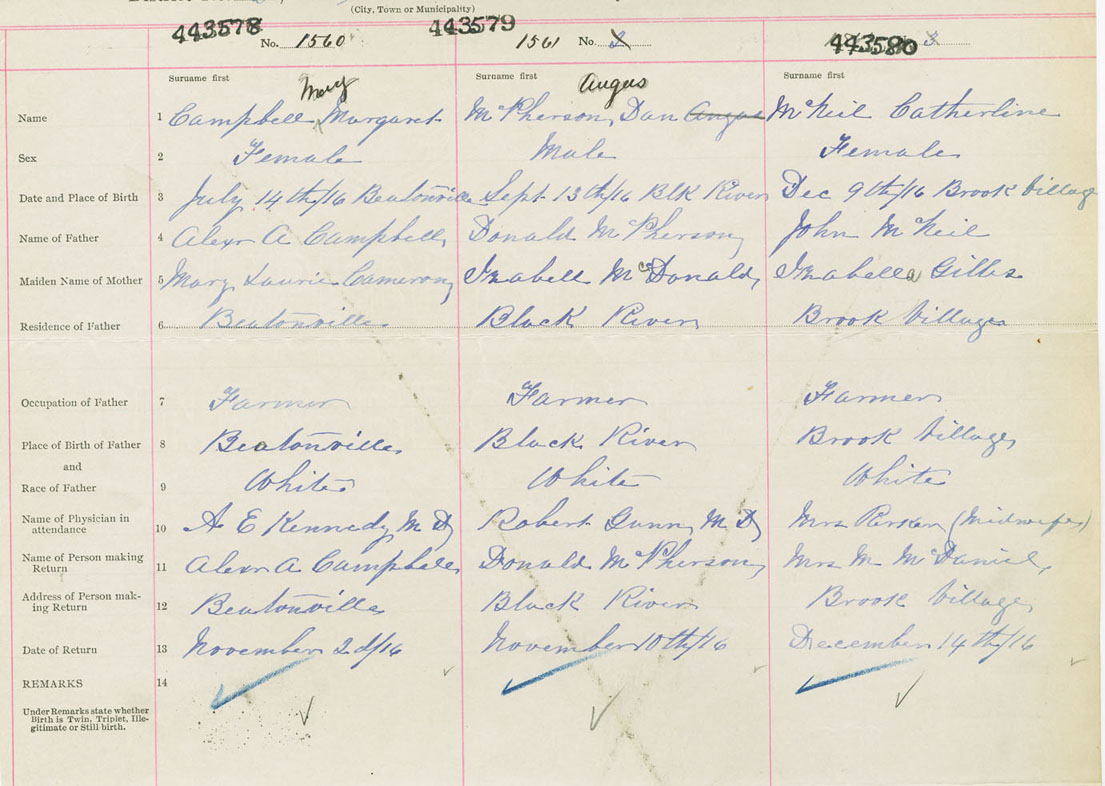 (City, Town or Municipality)
443578 No. 1560 443579 1561 No. 2 443580 3
Surname first Surname first Surname first
Mary Angus
Name 1 Campbell Margaret McPherson, Dan Angus McNeil Catherline
Sex 2 Female Male Female
Date and Place of Birth 3 July 14th/16 Beatonville Sept 13th/16 Blk River Dec 9th/16 Brook Village
Name of Father 4 Alexr A Campbell Donald McPherson John McNeil
Maiden Name of Mother 5 Mary Laurie Cameron Isabell McDonald Isabella Gillis
Residence of Father 6 Beatonville Black River Brook Village
Occupation of Father 7 Farmer Farmer Farmer
Place of Birth of Father 8 Beatonville Black River Brook Village
and
Race of Father 9 White White White
Name of Physician in attendance 10 A E Kennedy M D Robert Gunn M D Mrs Parker (Midwife)
Name of Person making Return 11 Alexr A Campbell Donald McPherson Mrs M McDaniel
Address of Person mak-
ing Return 12 Beatonville Black River Brook Village
Date of Return 13 November 2d/16 November 10th/16 December 14th/16
REMARKS 14
Under Remarks state whether
Birth is Twin, Triplet, Ille-
gitimate or Still-birth.